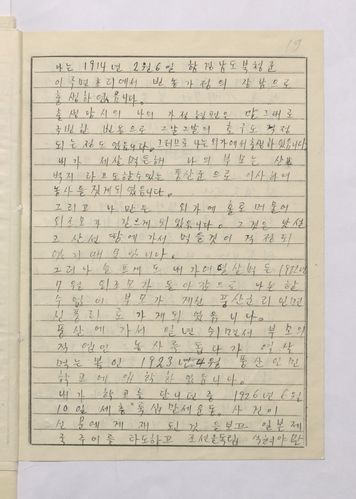 19
나는 1914년 2월 6일 함경남도 북청군
이곡면 초리에서 빈농가정의 장남으로
출생하였습니다.
출생 당시의 나의 가정 형편은 말 그대로
극빈한 빈농으로 그날그날의 호구도 걱정
되는 정도 였습니다. 그러므로 나는 외가에서 출생하였습니다
내가 세살 먹든해 나의 부모는 산
벽지 라고도 할수있는 풍산군으로 이사하여
농사를 짓게되 였습니다.
그리고 나 만은 외가에 홀로 머물어
외조모가 길으게 되 였습니다. 그것은 낯선
고산선 땅에 가서 먹을것이 걱정되
였기 때문입니다.
그러나 슬프게도 내가 여덟살 먹든 1921년
7월 외조모가 돌아감으로 나는 할
수없이 부모가 계신 풍산군 리인면
신풍리로 가게되 였습니다.
풍산에 가서 일년 쉬면서 부모의
직업인 농사를 돕다가 열살
먹는 봄인 1923년 4월 풍산 인민
학교에 입학 하였습니다.
내가 학교를 다니던 중 1926년 6월
10일 세칭 "륙십 만세 운동" 사건이
신문에 게재 된것을 보고 일본제
국주의를 타도하고 조선독립